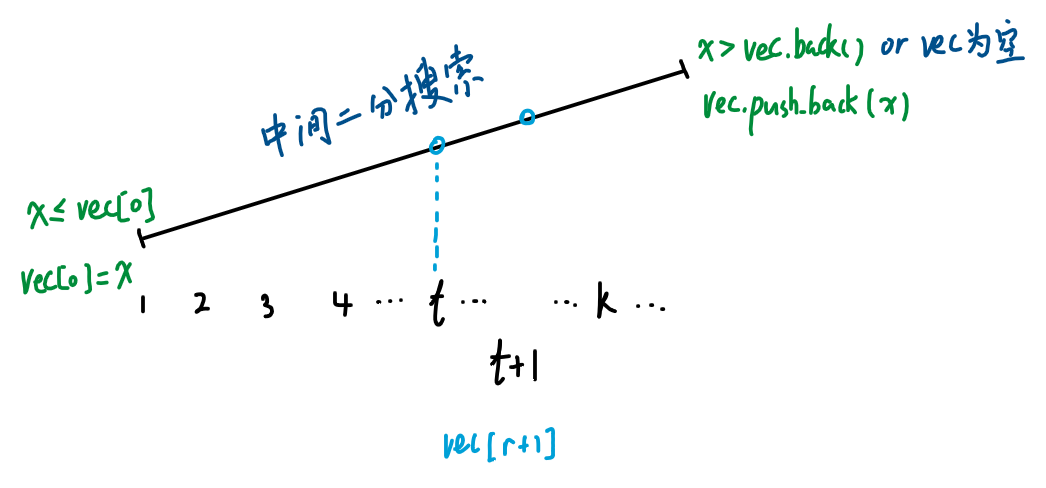 x > vec.back() or vec为空
vec.push_back(x)
中间二分搜索
x ≤ vec[0]
vec[0] = x
1 2 3 4 ... t ... ... k ...
t+1
vec[r+1]